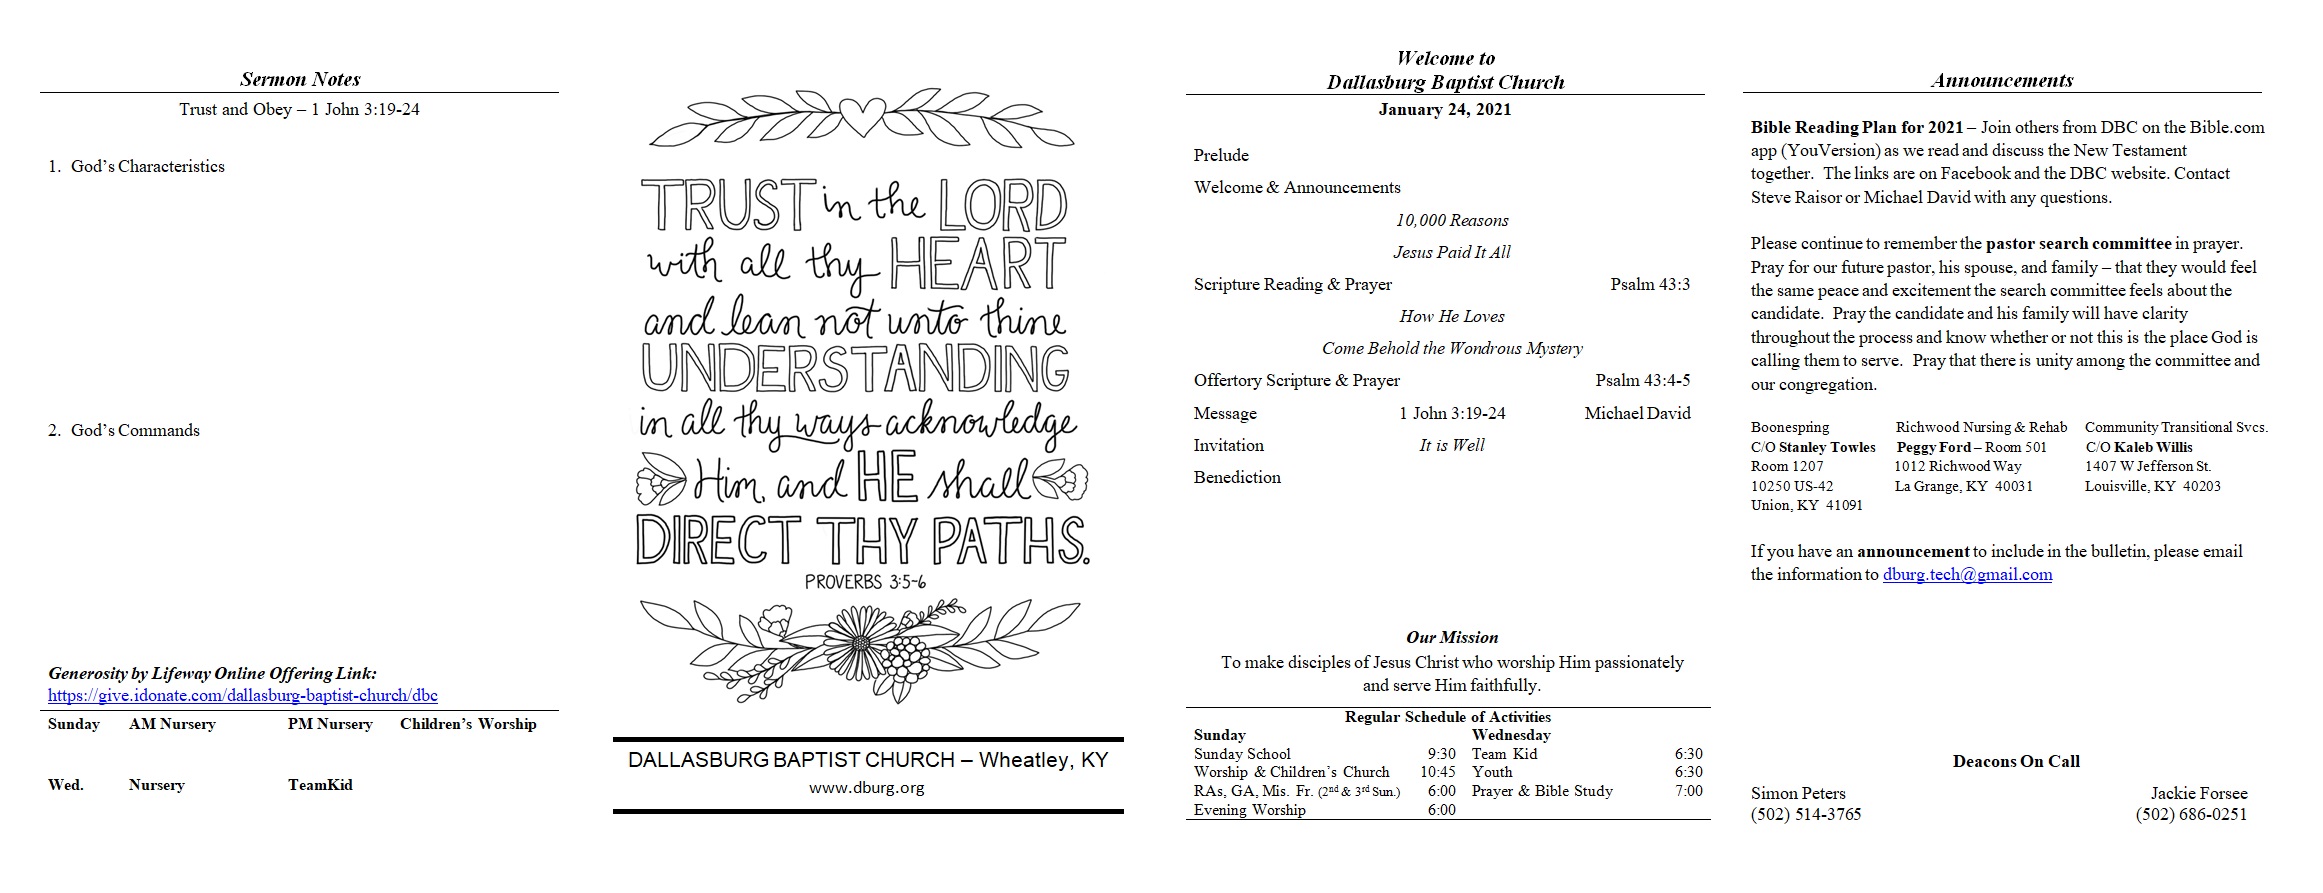 Sermon Notes
Trust and Obey – 1 John 3:19-24
1. God's Characteristics
2. God's Commands
Generosity by Lifeway Online Offering Link:
https://give.idonate.com/dallasburg-baptist-church/dbc
Sunday AM Nursery PM Nursery Children's Worship
Wed. Nursery TeamKid
TRUST in the LORD
with all thy HEART
and lean not unto thine
UNDERSTANDING
in all thy ways acknowledge
Him, and HE shall
DIRECT THY PATHS.
PROVERBS 3:5-6
DALLASBURG BAPTIST CHURCH – Wheatley, KY
www.dburg.org
Welcome to
Dallasburg Baptist Church
January 24, 2021
Prelude
Welcome & Announcements
10,000 Reasons
Jesus Paid It All
Scripture Reading & Prayer Psalm 43:3
How He Loves
Come Behold the Wondrous Mystery
Offertory Scripture & Prayer Psalm 43:4-5
Message 1 John 3:19-24 Michael David
Invitation It is Well
Benediction
Our Mission
To make disciples of Jesus Christ who worship Him passionately
and serve Him faithfully.
Regular Schedule of Activities
Sunday Wednesday
Sunday School 9:30 Team Kid 6:30
Worship & Children's Church 10:45 Youth 6:30
RAs, GA, Mis. Fr. (2nd & 3rd Sun.) 6:00 Prayer & Bible Study 7:00
Evening Worship 6:00
Announcements
Bible Reading Plan for 2021 – Join others from DBC on the Bible.com
app (YouVersion) as we read and discuss the New Testament
together. The links are on Facebook and the DBC website. Contact
Steve Raisor or Michael David with any questions.
Please continue to remember the pastor search committee in prayer.
Pray for our future pastor, his spouse, and family – that they would feel
the same peace and excitement the search committee feels about the
candidate. Pray the candidate and his family will have clarity
throughout the process and know whether or not this is the place God is
calling them to serve. Pray that there is unity among the committee and
our congregation.
Boonespring Richwood Nursing & Rehab Community Transitional Svcs.
C/O Stanley Towles Peggy Ford – Room 501 C/O Kaleb Willis
Room 1207 1012 Richwood Way 1407 W Jefferson St.
10250 US-42 La Grange, KY 40031 Louisville, KY 40203
Union, KY 41091
If you have an announcement to include in the bulletin, please email
the information to dburg.tech@gmail.com
Deacons On Call
Simon Peters Jackie Forsee
(502) 514-3765 (502) 686-0251